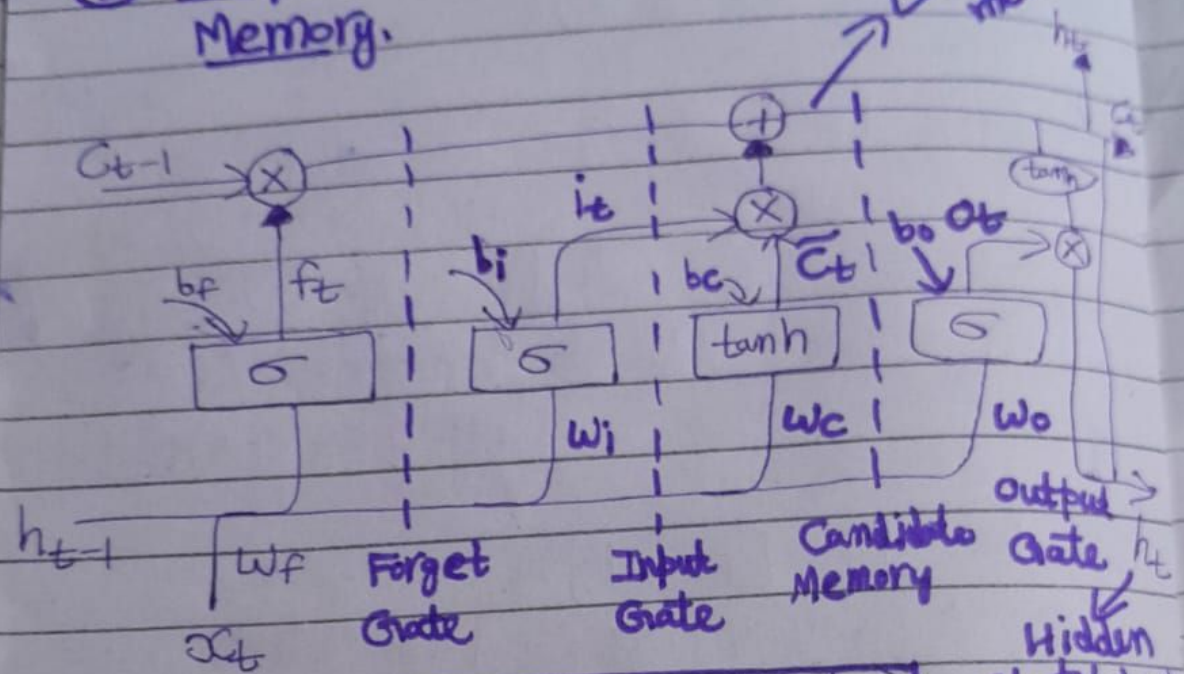 Memory.
ht
Ct-1
×
+
Ct
tanh
it
×
C̃t
bo
Ot
×
bf
ft
bi
bc
σ
σ
tanh
σ
Wi
Wc
Wo
ht-1
Wf
xt
Forget
Gate
Input
Gate
Candidate
Memory
Output
Gate
ht
Hidden